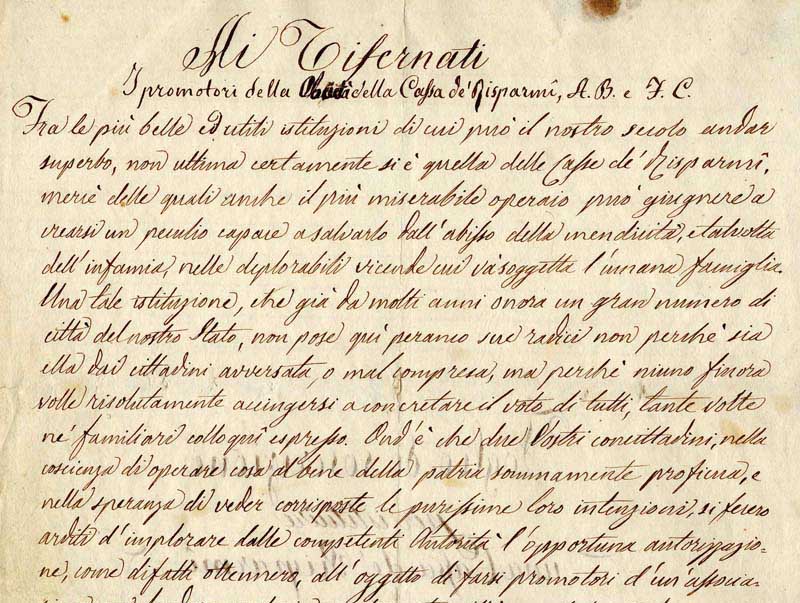 Ai Tifernati
I promotori della della Cassa de' Risparmî, A. B. e F. C.
Fra le più belle ed utili istituzioni di cui può il nostro secolo andar
superbo, non ultima certamente si è quella delle Casse de' Risparmî,
mercè delle quali anche il più miserabile operaio può giugnere a
crearsi un peculio capace a salvarlo dall'abisso della mendicità, e talvolta
dell'infamia, nelle deplorabili vicende cui và soggetta l'umana famiglia.
Una tale istituzione, che già da molti anni onora un gran numero di
città del nostro Stato, non pose quì peranco sue radici non perchè sia
ella dai cittadini avversata, o mal compresa, ma perchè niuno finora
volle risolutamente accingersi a concretare il voto di tutti, tante volte
ne' familiari colloquî espresso. Ond'è che due Vostri concittadini, nella
coscienza di operare cosa al bene della patria sommamente proficua, e
nella speranza di veder corrisposte le purissime loro intenzioni, si fecero
arditi d'implorare dalle competenti Autorità l'opportuna autorizzazio=
ne, come difatti ottennero, all'oggetto di farsi promotori d'un'associa=